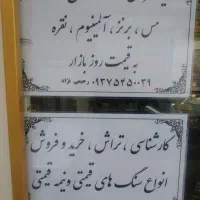 مس ، برنز ، آلمینیوم ، نقره
به قیمت روز بازار
۰۹۳۷۵۴۵۰۰۳۹ رحیمی نژاد
کارشناسی ، تراش ، خرید و فروش
انواع سنگ های قیمتی و نیمه قیمتی